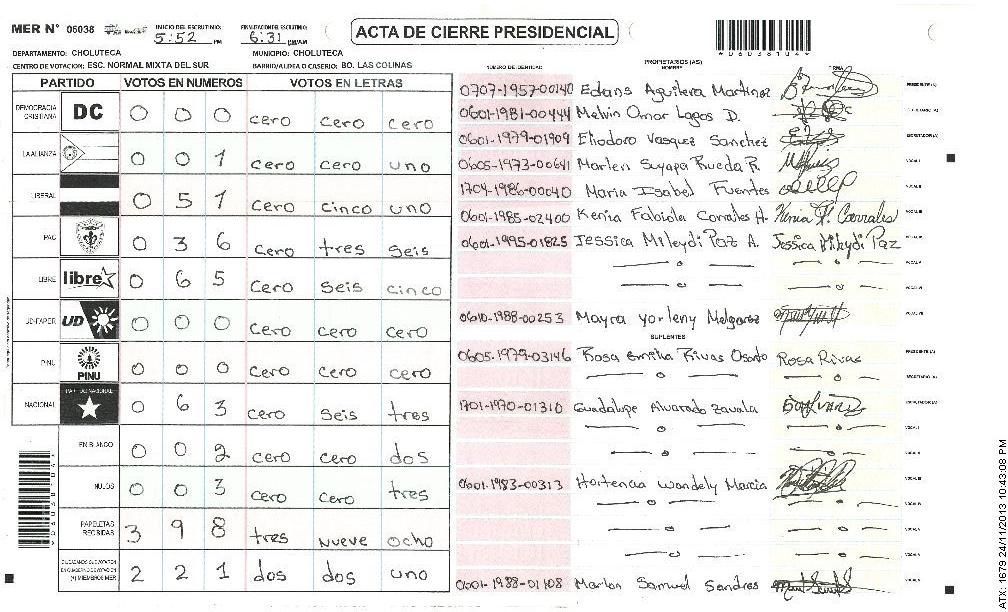 MER N° 06038 INICIO DEL ESCRUTINIO: 5:52 PM FINALIZACION DEL ESCRUTINIO: 6:31 PM/AM
ACTA DE CIERRE PRESIDENCIAL
*060381044*
DEPARTAMENTO: CHOLUTECA MUNICIPIO: CHOLUTECA
CENTRO DE VOTACION: ESC. NORMAL MIXTA DEL SUR BARRIO/ALDEA O CASERIO: BO. LAS COLINAS
PARTIDO VOTOS EN NUMEROS VOTOS EN LETRAS
DEMOCRACIA CRISTIANA DC 0 0 0 cero cero cero
LA ALIANZA 0 0 1 cero cero uno
LIBERAL 0 5 1 cero cinco uno
PAC 0 3 6 cero tres seis
LIBRE libre 0 6 5 cero seis cinco
UD-FAPER UD 0 0 0 cero cero cero
PINU PINU 0 0 0 cero cero cero
NACIONAL PARTIDO NACIONAL 0 6 3 cero seis tres
EN BLANCO 0 0 2 cero cero dos
NULOS 0 0 3 cero cero tres
PAPELETAS RECIBIDAS 3 9 8 tres nueve ocho
CIUDADANOS QUE VOTARON EN CUADERNO DE VOTACION (+) MIEMBROS MER 2 2 1 dos dos uno
NUMERO DE IDENTIDAD PROPIETARIOS (AS) NOMBRE FIRMA
0707-1957-00140 Edans Aguilera Martinez PRESIDENTE (A)
0601-1981-00444 Melvin Omar Lagos D. SECRETARIO (A)
0601-1979-01909 Eliodoro Vasquez Sanchez ESCRUTADOR (A)
0605-1973-00641 Marlen Suyapa Rueda R. VOCAL I
1704-1986-00040 Maria Isabel Fuentes VOCAL II
0601-1985-02400 Kenia Fabiola Corrales H. Kenia F. Corrales VOCAL III
0601-1995-01825 Jessica Mileydi Paz A. Jessica Mileydi Paz
VOCAL V
VOCAL VI
0610-1988-00253 Mayra Yorleny Melgarez
SUPLENTES
0605-1979-03146 Rosa Emilia Rivas Osorto Rosa Rivas PRESIDENTE (A)
SECRETARIO (A)
1701-1970-01310 Guadalupe Alvarado Zavala ESCRUTADOR (A)
VOCAL I
VOCAL II
0601-1983-00313 Hortencia Wandely Marcia VOCAL III
0601-1988-01108 Marlon Samuel Sandres
ATX: 1679 24/11/2013 10:43:08 PM